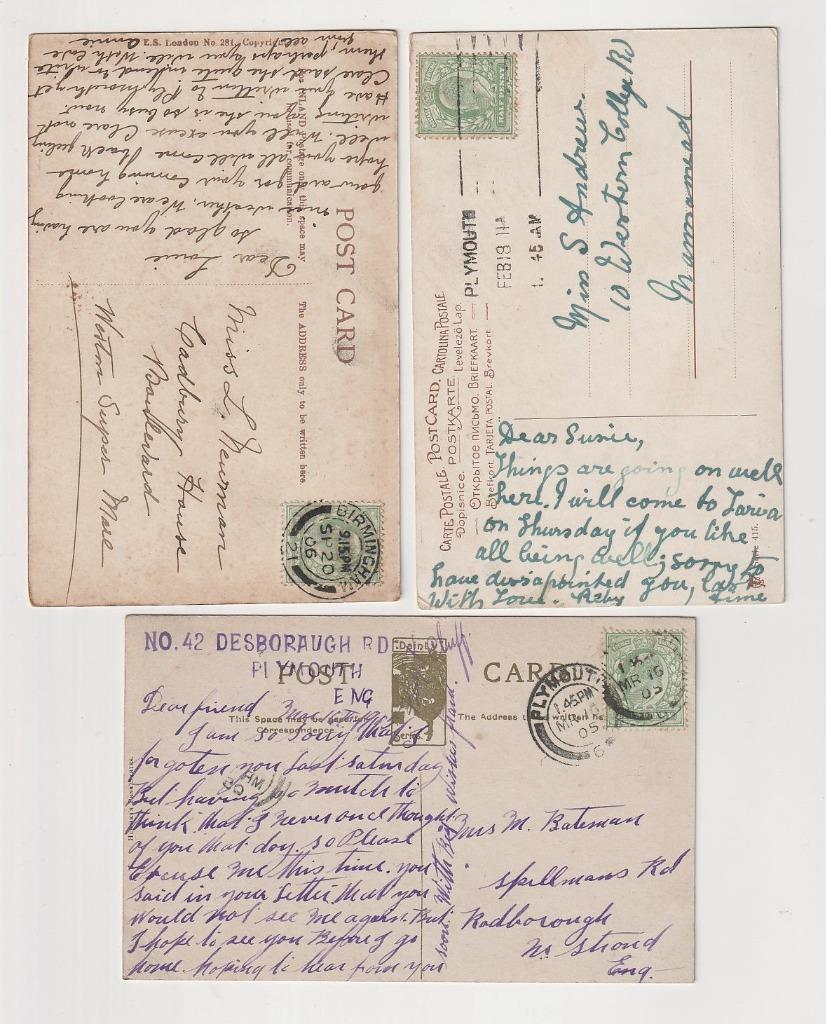 E.S. London No 281. Copyright
POST CARD
For INLAND Postage only this space may
be used for communication.
The ADDRESS only to be written here
Dear Louie
so glad you are having
nice weather, We are looking
forward for your coming home
hope you all will come back feeling
well. Will you excuse Clare not
writing to you she is so busy now.
Have you written to Plymouth yet
Clare said she quite intend to write
them, perhaps you will. With love
from all
Annie
Miss L. Newman
Cadbury House
Boulevard
Weston Super Mare
BIRMINGHAM
9.15PM
SP 20
06
21
HALF PENNY
PLYMOUTH
FEB 18 11A
1. 45 AM
CARTE POSTALE. POSTCARD. CARTOLINA POSTALE
Dopisnice. POSTKARTE. Levelező-Lap.
ОТКРЫТОЕ ПИСЬМО. BRIEFKAART.
Brefkort. TARJETA POSTAL. Brevkort.
Miss S Andrews.
10 Western College Rd
Mannamead
Dear Susie,
Things are going on well
here. I will come to
on Thursday if you like
all being well; sorry to
have dissapointed you, last
With Love. time
415.
NO. 42 DESBORAUGH RD
PLYMOUTH
ENG
POST CARD
Dainty
Series.
This Space may be used for
Correspondence.
The Address to be written here
Dear friend
I am so sorry that I
forgoten you last saturday
But having so mutch to
think that I never once thought
of you that day. so Please
Excuse me this time. you
said in your letter that you
would not see me again. But
I hope to see you Before I go
home. hoping to hear from you
soon. With Best wishes
PLYMOUTH
1.45PM
MR 16
05
6
Mrs M. Bateman
Spillmans Rd
Rodborough
Nr Stroud
Eng.